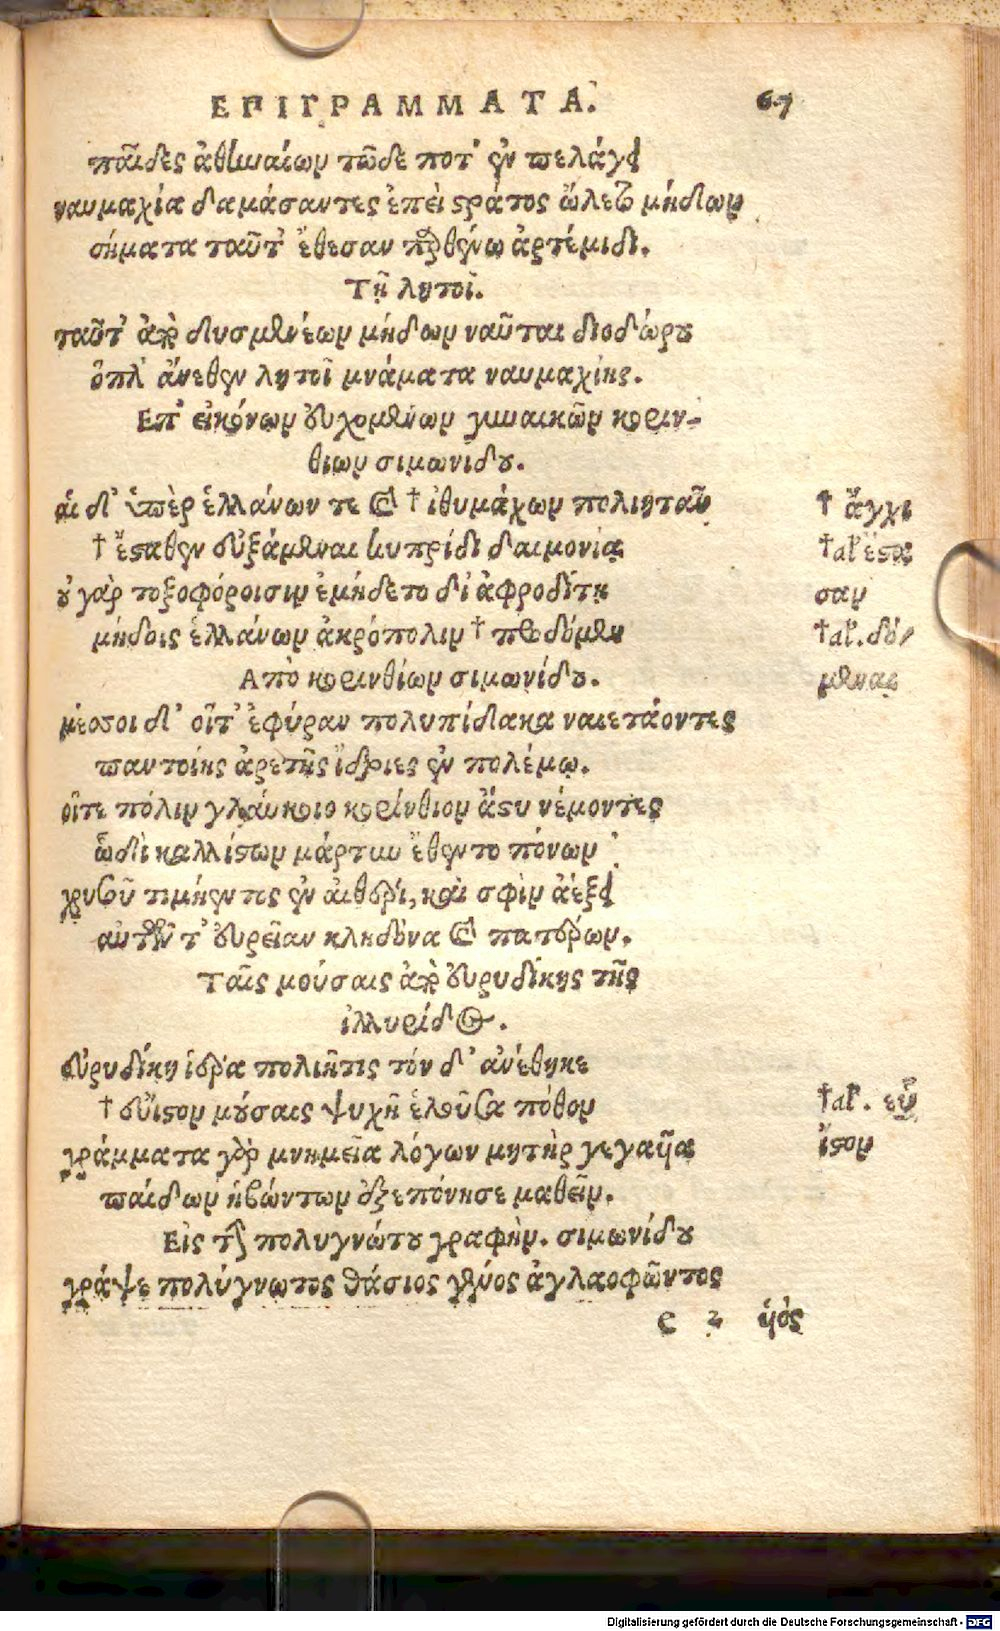 ΕΠΙΓΡΑΜΜΑΤΑ. 67
παῖδες ἀθηναίων τῷδε ποτ' ἐν πελάγει
ναυμαχίᾳ δαμάσαντες ἐπεὶ στράτος ὤλετο μήδων
σήματα ταῦτ' ἔθεσαν παρθένῳ ἀρτέμιδι.
Τῇ λητοῖ.
ταῦτ' ἀπὸ δυσμενέων μήδων ναῦται διοδώρου
ὅπλ' ἄνεθεν λητοῖ μνάματα ναυμαχίης.
Επ' εἰκόνων εὐχομένων γυναικῶν κοριν-
θίων σιμωνίδου.
αἱ δ' ὑπὲρ ἑλλάνων τε καὶ † ἰθυμάχων πολιητᾶν † ἄγχι
† ἔσταθεν εὐξάμεναι κυπρίδι δαιμονίᾳ † al' ἔστα
οὐ γὰρ τοξοφόροισιν ἐμήδετο δι' ἀφροδίτη σαν
μήδοις ἑλλάνων ἀκρόπολιν † προδόμεν † al'. δό/
Απὸ κορινθίων σιμωνίδου. μεναι
μέσσοι δ' οἵτ' ἐφύραν πολυπίδακα ναιετάοντες
παντοίης ἀρετῆς ἴδριες ἐν πολέμῳ.
οἵτε πόλιν γλαύκοιο κορίνθιον ἄστυ νέμοντες
ὧδὶ καλλίστων μάρτυν ἔθεντο πόνων
χρυσοῦ τιμήεντος ἐν αἰθέρι, καὶ σφὶν ἀέξει
αὐτῶν τ' εὐρεῖαν κληδόνα καὶ πατέρων.
Ταῖς μούσαις ἀπὸ εὐρυδίκης τῆς
ἰλλυρίδος.
εὐρυδίκη ἱερρα πολιῆτις τόν δ' ἀνέθηκε
† εὔιστον μούσαις ψυχῇ ἑλοῦσα πόθον † al'. εὖ
γράμματα γὰρ μνημεῖα λόγων μητὴρ γεγαυῖα ἴστον
παίδων ἡβώντων ἐξεπόνησε μαθεῖν.
Εἰς τὴν πολυγνώτου γραφὴν. σιμωνίδου
γράψε πολύγνωτος θάσιος γένος ἀγλαοφῶντος
e 2 υἱὸς
Digitalisierung gefördert durch die Deutsche Forschungsgemeinschaft - DFG